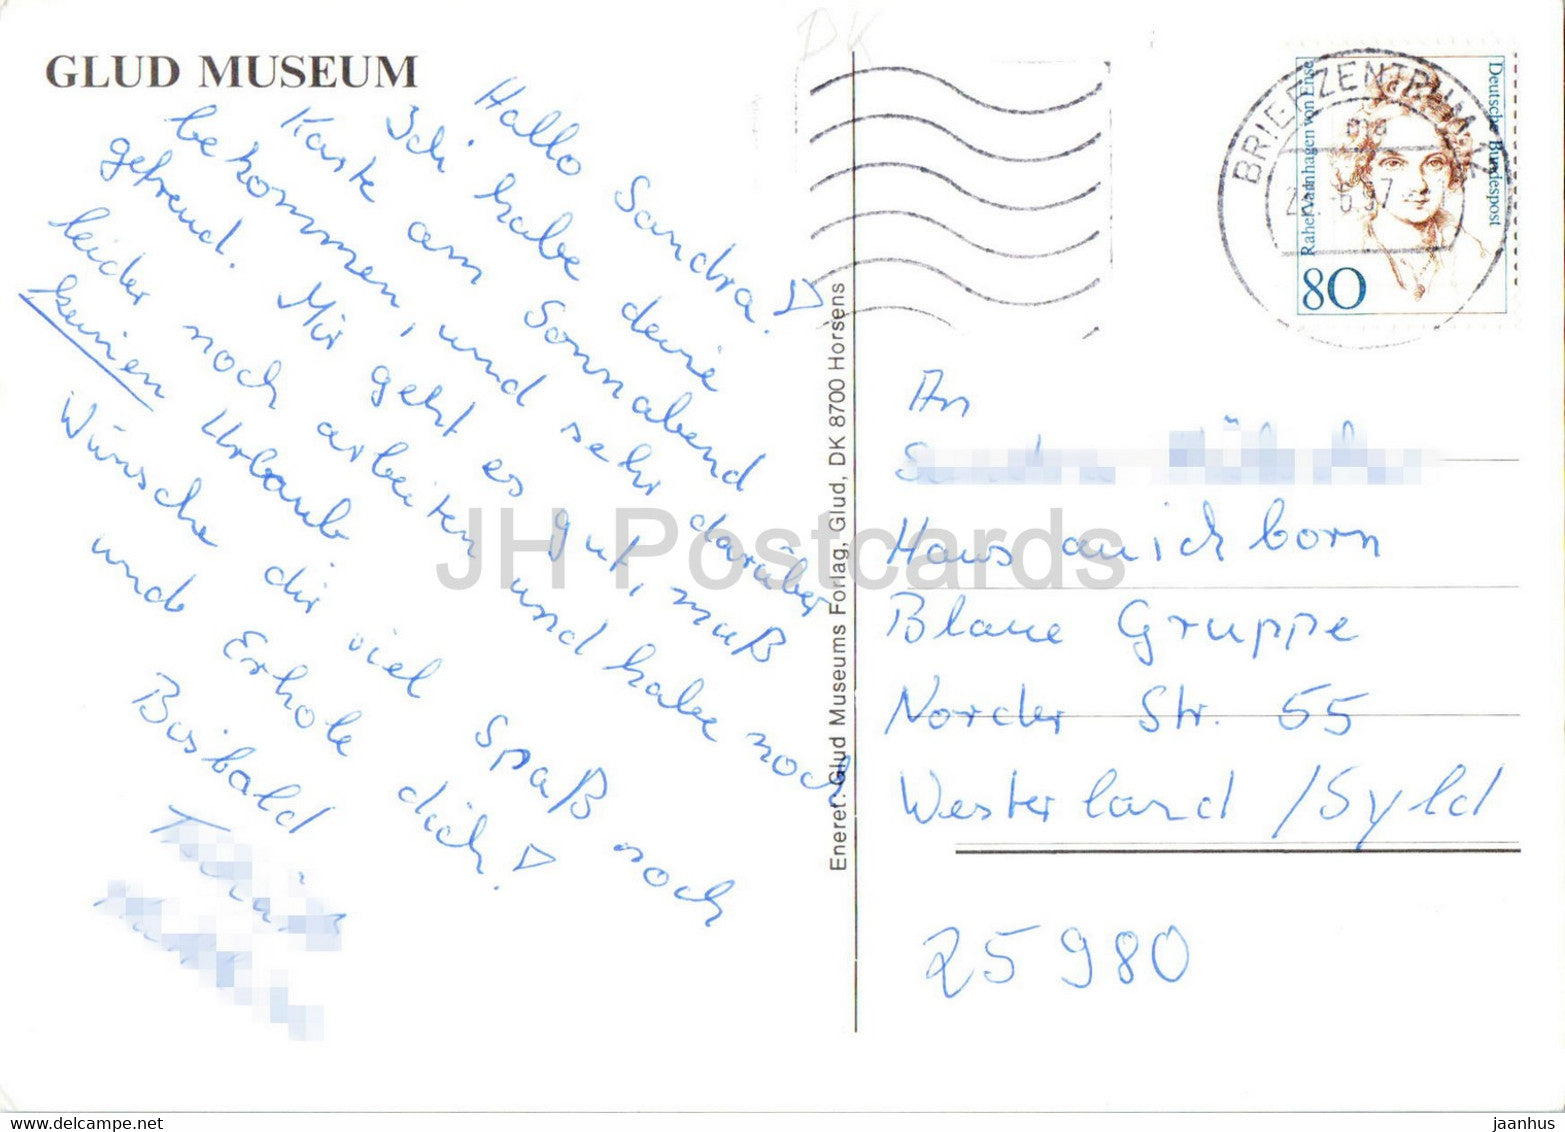 GLUD MUSEUM
Hallo Sandra!
Ich habe deine
Karte am Sonnabend
bekommen, und sehr darüber
gefreud. Mir geht es gut, muß
leider noch arbeiten und habe noch
keinen Urlaub.
Wünsche dir viel Spaß noch
und Erhole dich!
Bisbald
Eneret: Glud Museums Forlag, Glud, DK 8700 Horsens
DK
BRIEFZENTRUM
97
Deutsche Bundespost
Rahel Varnhagen von Ense
80
An
Haus
born
Blaue Gruppe
Norder Str. 55
Westerland /Syld
25980
JH Postcards
delcampe.net
jaanhus